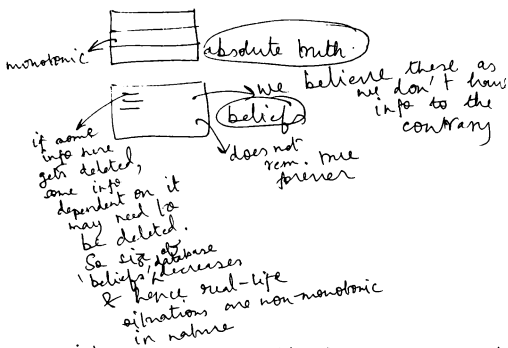 monotonic
absolute truth.
we believe these as
we don't have
info to the
contrary
beliefs
does not
rem. true
forever
if some
info here
gets deleted,
some info
dependent on it
may need to
be deleted.
So size of
'beliefs' database
decreases
& hence real-life
situations are non-monotonic
in nature